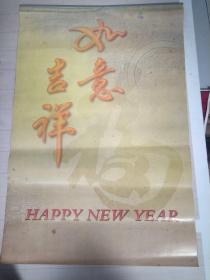 如意
吉祥
福
HAPPY NEW YEAR